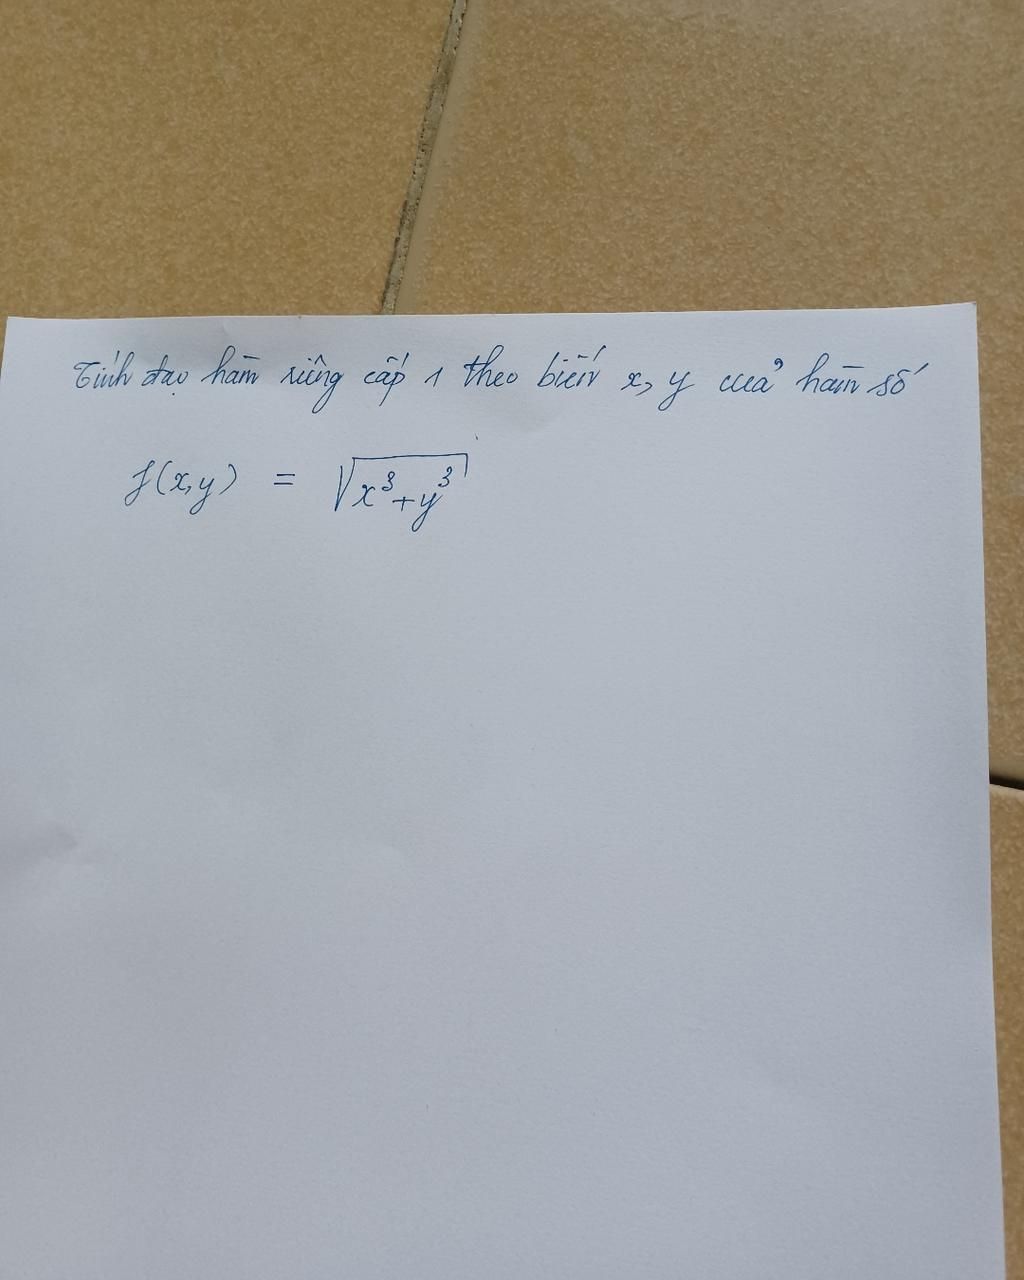 Tính đạo hàm riêng cấp 1 theo biến x, y của hàm số
f(x,y) = √(x³+y³)